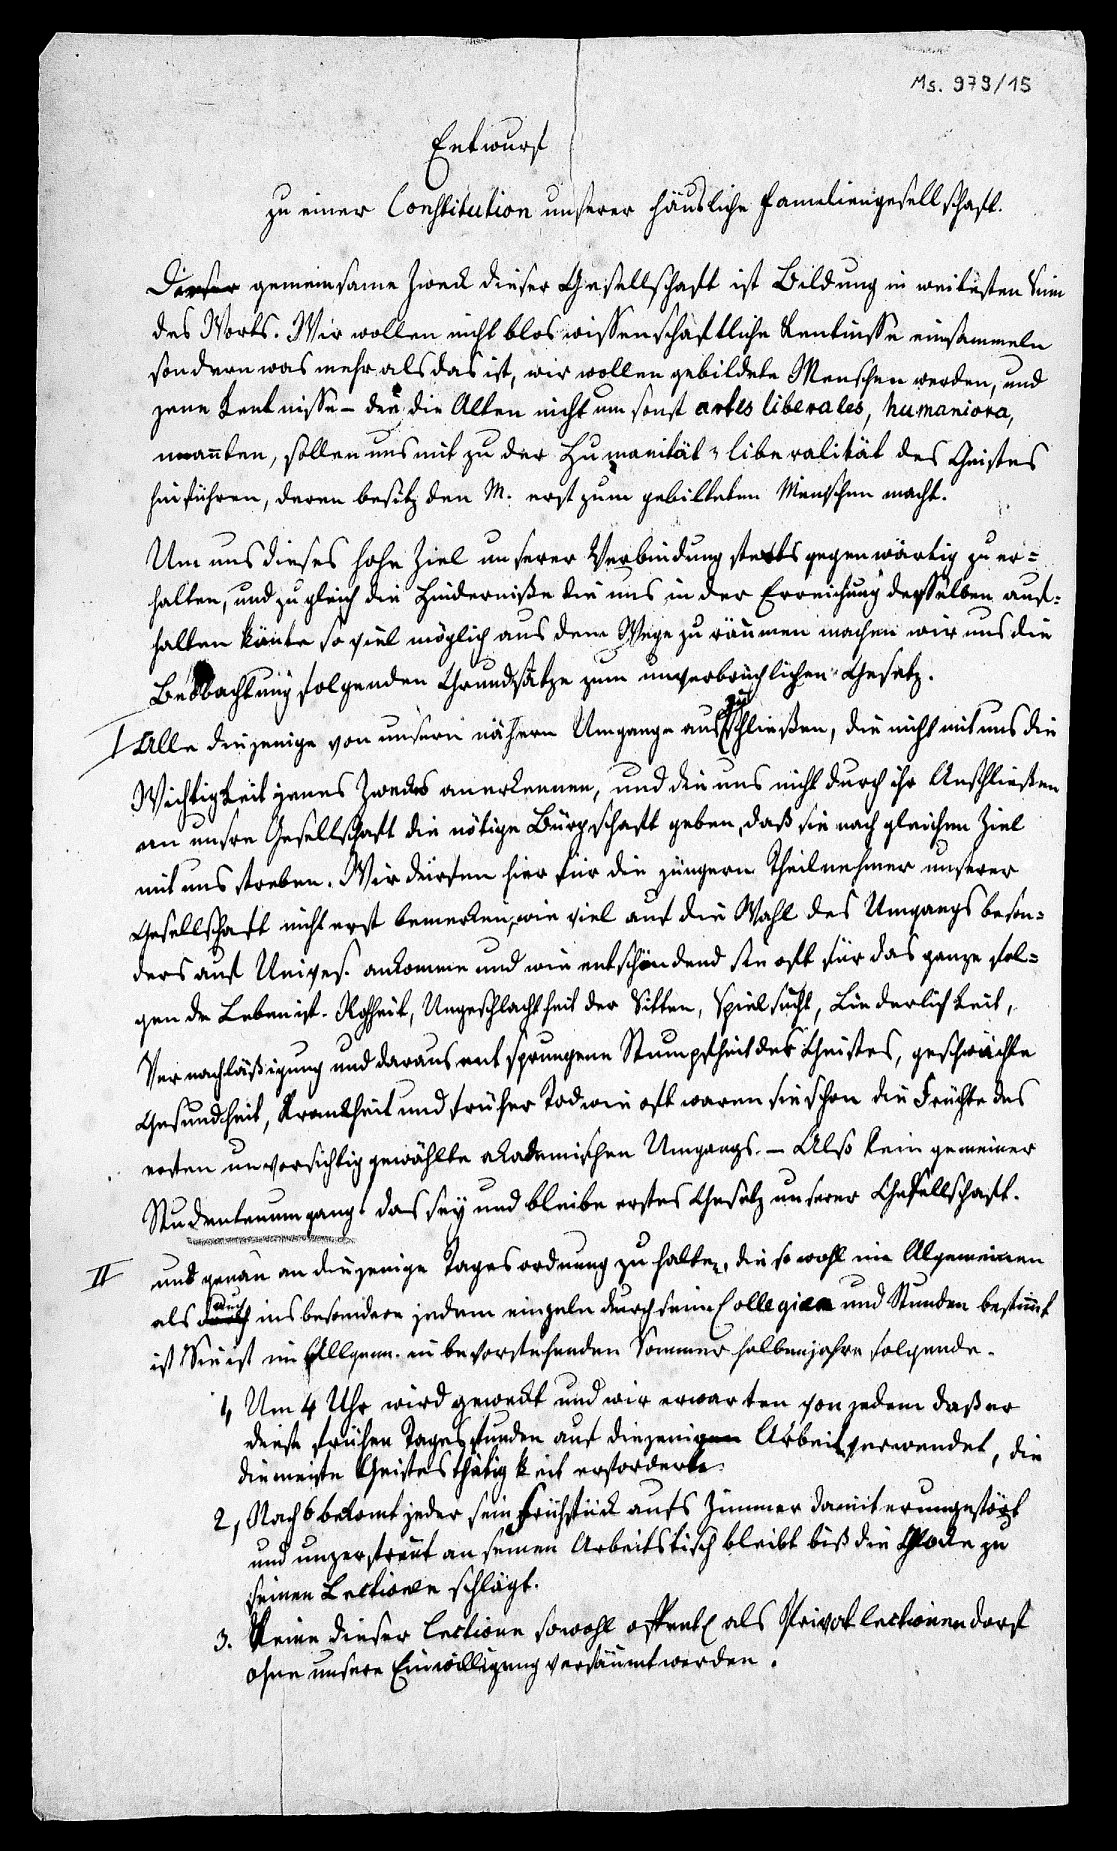 Ms. 979/15
Entwurf
zu einer Constitution unserer häusliche Fameliengesellschaft.
Dieser gemeinsame Zweck dieser Gesellschaft ist Bildung in weitesten Sinn
des Worts. Wir wollen nicht blos wissenschaftliche Kentnisse einsammeln
sondern was mehr als das ist, wir wollen gebildete Menschen werden, und
jene Kentnisse – die die Alten nicht um sonst artes liberales, humaniora,
nannten, sollen uns mit zu der Humanität u liberalität des Geistes
hinführen, deren besitz den M. erst zum gebildeten Menschen macht.
Um uns dieses hohe Ziel unserer Verbindung stets gegenwärtig zu er=
halten, und zugleich die Hinderniße die uns in der Erreichung desselben auf=
halten könte so viel möglich aus dem Wege zu räumen machen wir uns die
Beobachtung folgenden Grundsätze zum unverbrüchlichen Gesetz.
I Alle diejenige von unserm nähern Umgange auszuschließen, die nicht mit uns die
Wichtigkeit jenes Zwecks anerkennen, und die uns nicht durch ihr Anschließen
an unsre Gesellschaft die nötige Bürgschaft geben, daß sie nach gleichem Ziel
mit uns streben. Wir dürfen hier für die jüngern Theilnehmer unserer
Gesellschaft nicht erst bemerken, wie viel auf die Wahl des Umgangs beson=
ders auf Univers. ankomme und wie entscheidend sie oft für das ganze fol=
gende Leben ist. Rohheit, Ungeschlachtheit der Sitten, Spielsucht, Liederlichkeit,
Vernachläßigung und daraus entsprungene Stumpfheit des Geistes, geschwächte
Gesundheit, Krankheit und früher Tod wie oft waren sie schon die Früchte des
ersten unvorsichtig gewählte akademischen Umgangs. – Also kein gemeiner
Studentenumgang! das sey und bleibe erstes Gesetz unserer Gesellschaft.
II uns genau an diejenige Tagesordnung zu halten, die sowohl im Algemeinen
als auch insbesondere jedem einzeln durch seine Collegien und Stunden bestimt
ist Sie ist im Allgem. in bevorstehenden Sommer halbenjahre folgende.
1, Um 4 Uhr wird geweckt und wir erwarten von jedem daß er
diese frühen Tagesstunden auf diejenigen Arbeit verwendet, die
die meiste Geistesthätigkeit erforderte.
2, Nach 6 bekomt jeder sein Frühstück aufs Zimmer damit er ungestört
und unzerstreut an seinen Arbeitstisch bleibt biß die Glocke zu
seinen Lectionen schlägt.
3. Keine dieser Lectionen sowohl öffentl. als Privatlectionen darf
ohne unsere Einwilligung versäumt werden.